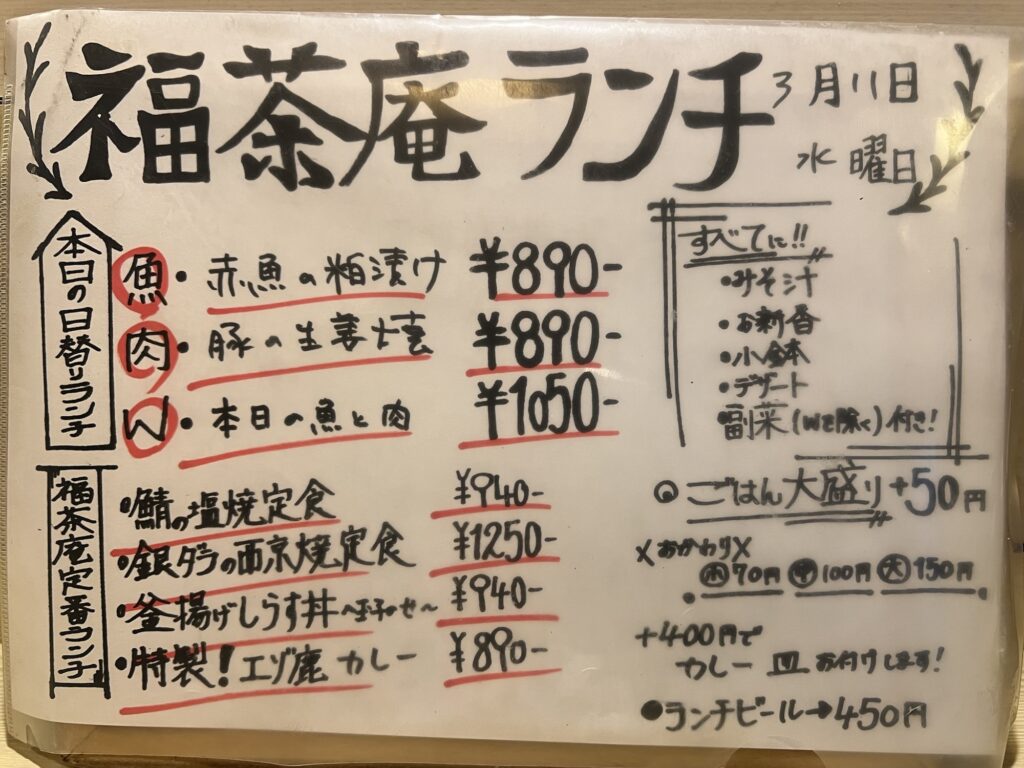 福茶庵ランチ
3月11日
水曜日
本日の日替りランチ
魚・赤魚の粕漬け ¥890-
肉・豚の生姜焼 ¥890-
W・本日の魚と肉 ¥1050-
すべてに!!
・みそ汁
・お新香
・小鉢
・デザート
・副菜(Wを除く)付き!
福茶庵定番ランチ
・鯖の塩焼定食 ¥940-
・銀ダラの西京焼定食 ¥1250-
・釜揚げしらす丼〜玉子のせ〜 ¥940-
・特製!エゾ鹿カレー ¥890-
◎ごはん大盛り+50円
×おかわり×
小70円 中100円 大150円
+400円で
カレー皿お付けします!
●ランチビール→450円